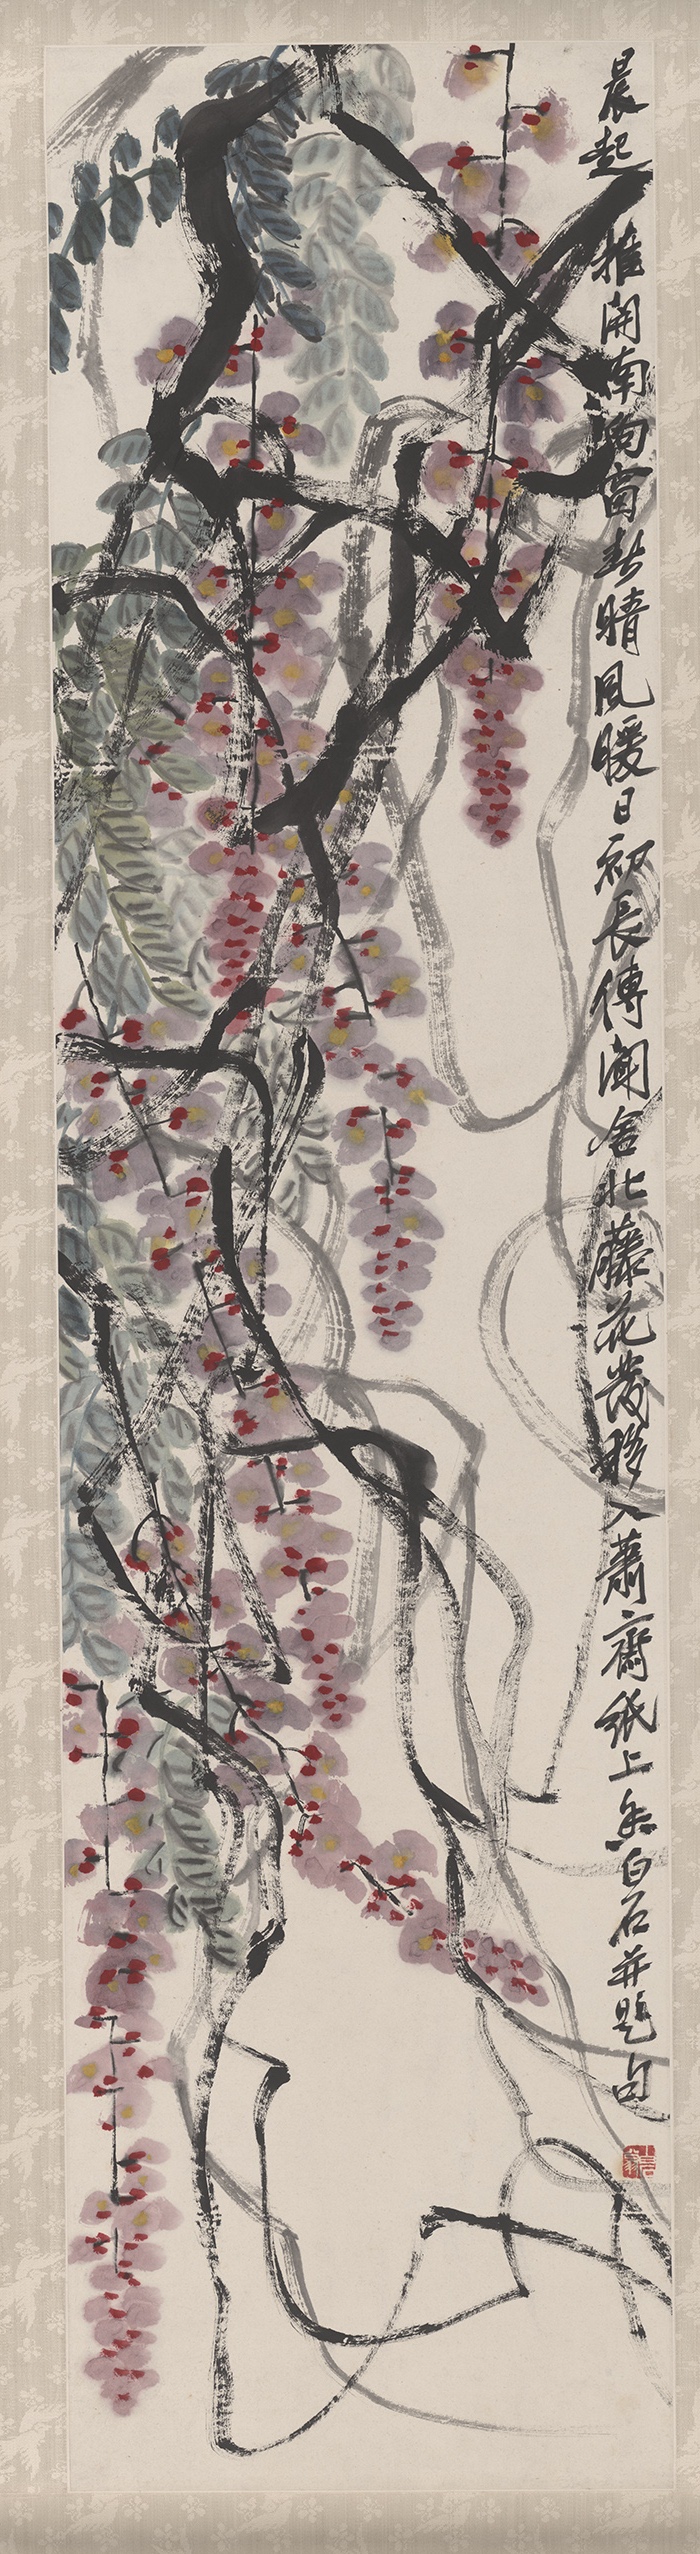 晨起推開南向窗新晴風暖日初長傳聞舍北藤花發移入蕭齋紙上香白石並題句